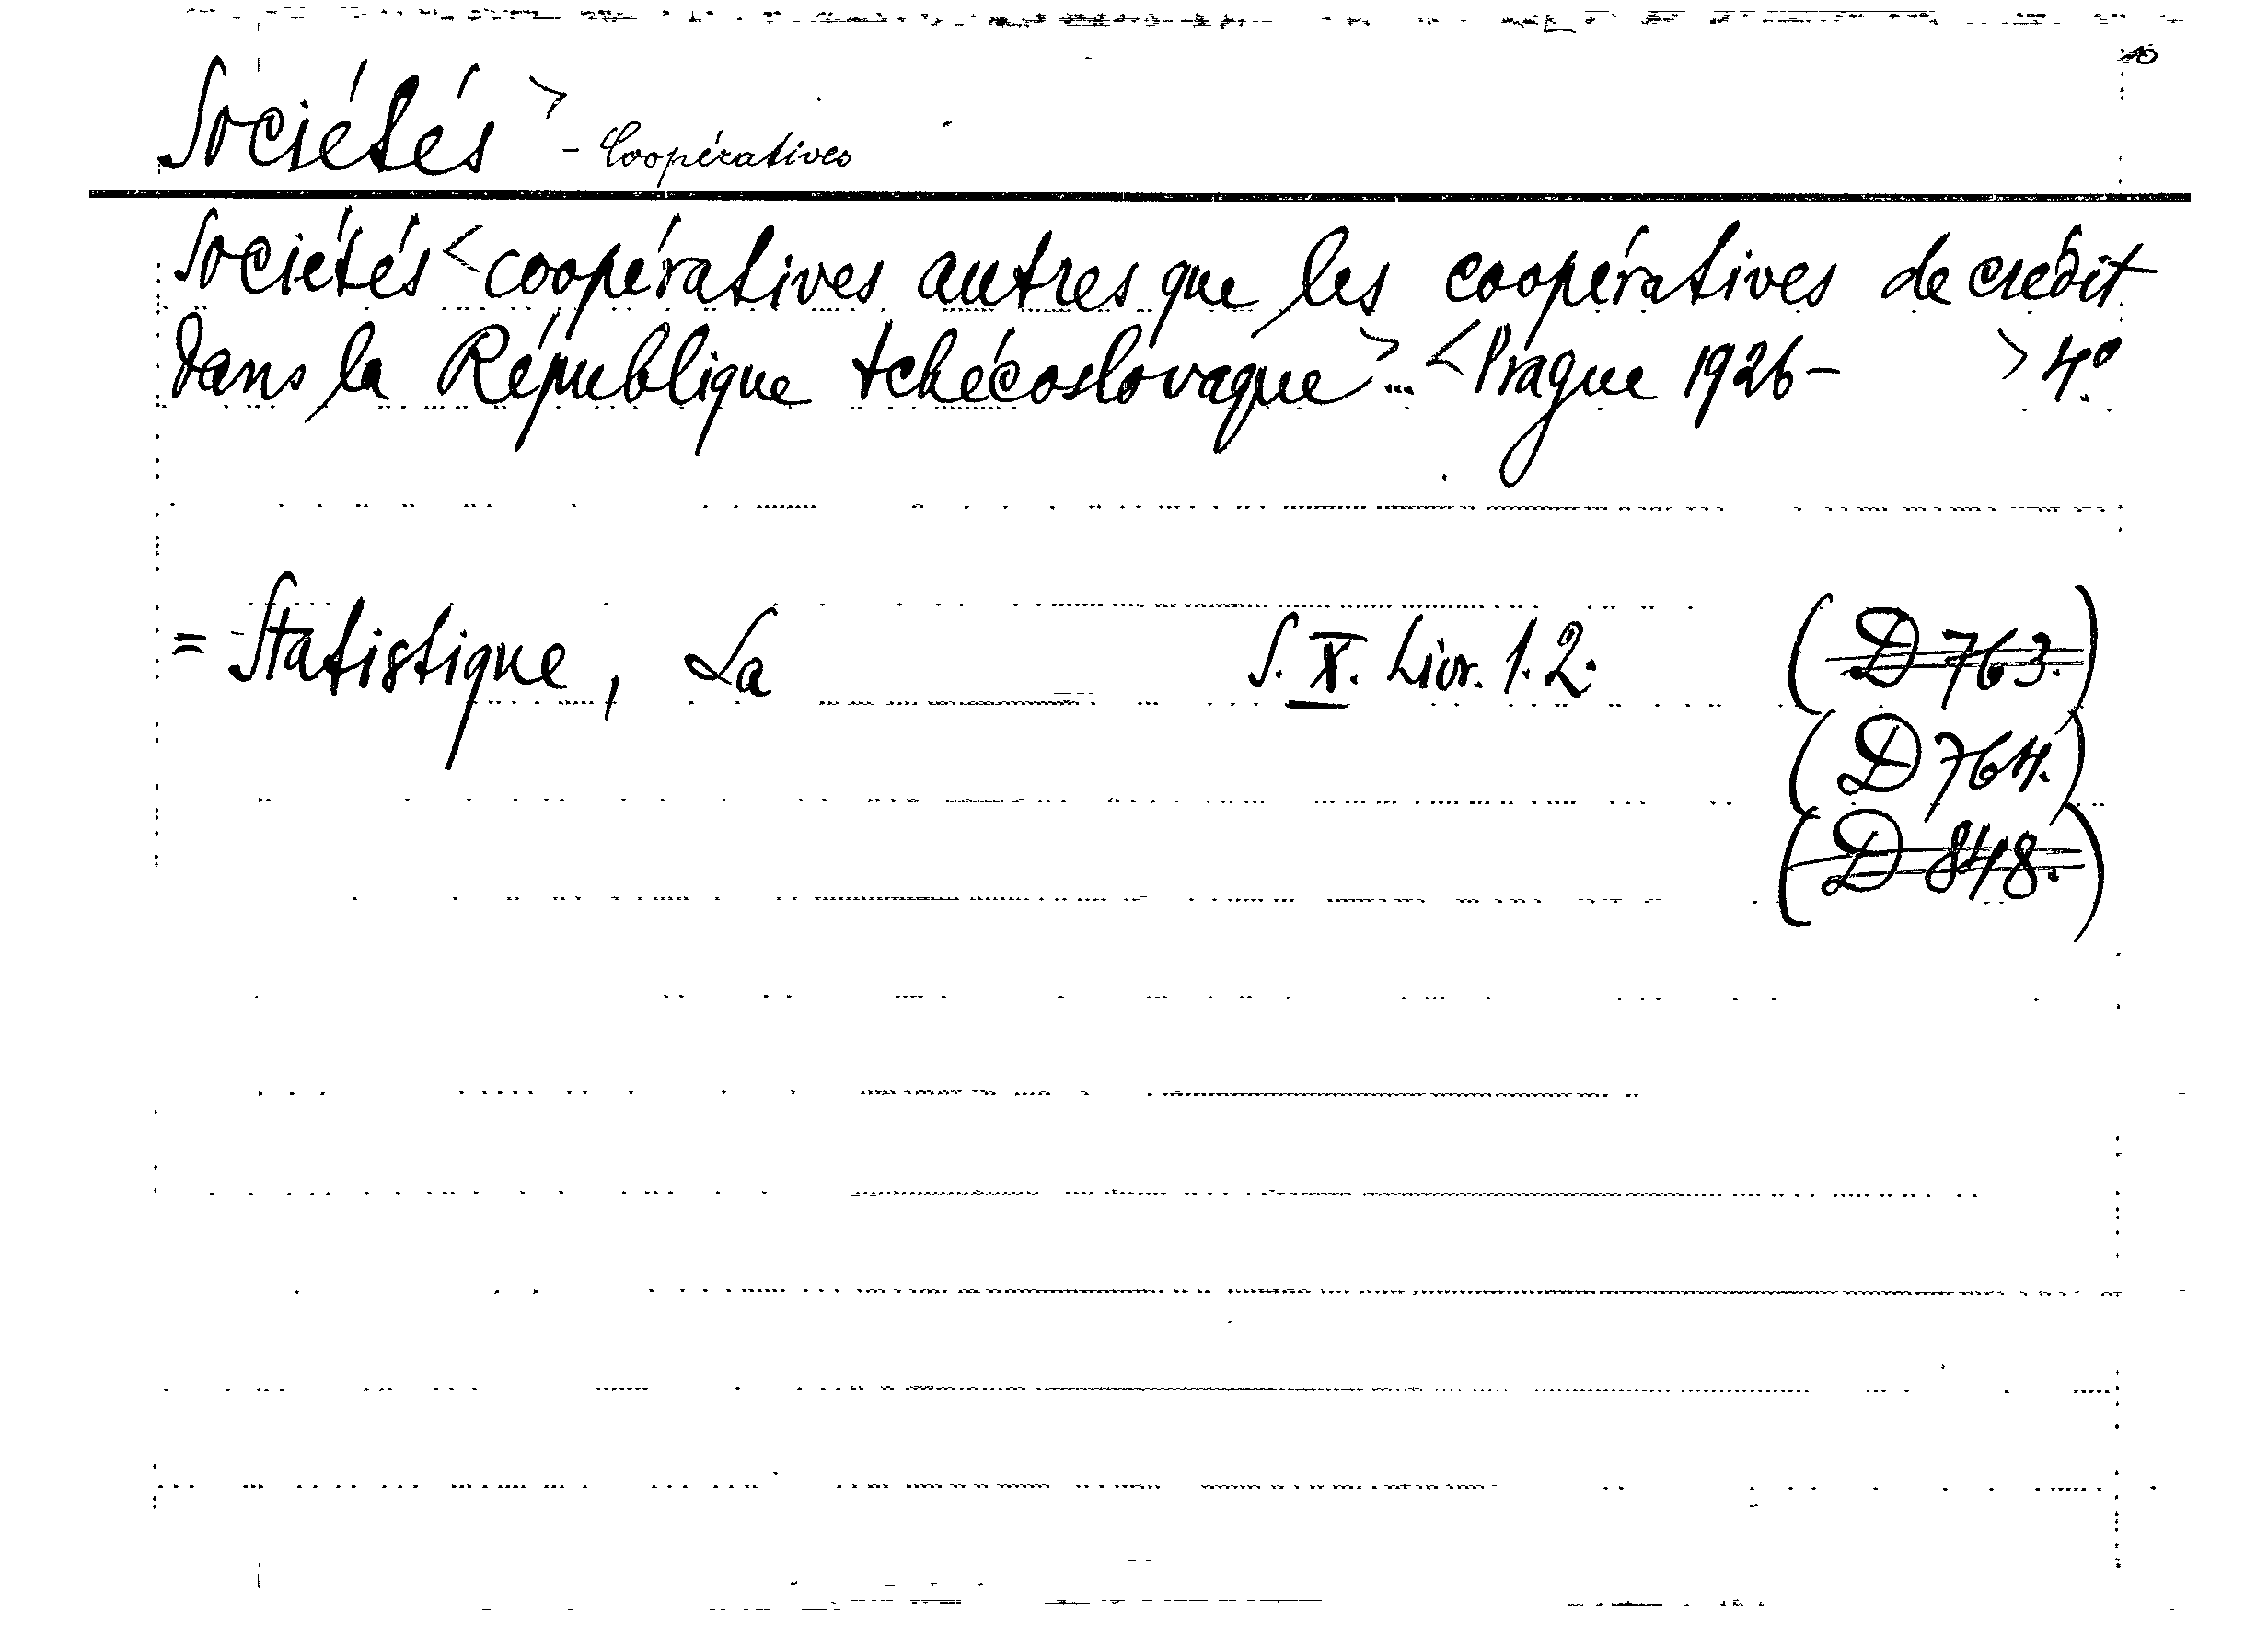 Sociétés > - Coopératives
Sociétés < coopératives autres que les coopératives de crédit
dans la République tchécoslovaque > ... < Prague 1926 - > 4º
= Statistique, La S. X. Livr. 1. 2. (D 763.)
(D 764.)
(D 848.)